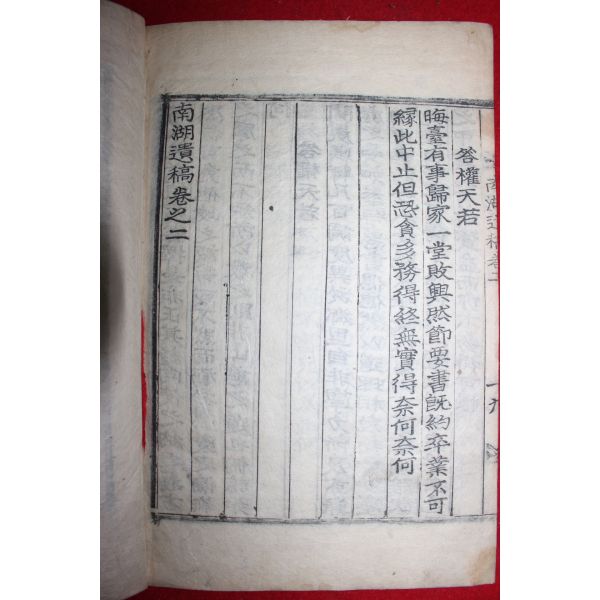 南湖遺稿卷二
十九
答權天若
晦臺有事歸家一堂敗興然節要書旣約卒業不可
緣此中止但恐貪多務得終無實得奈何奈何
南湖遺稿卷之二